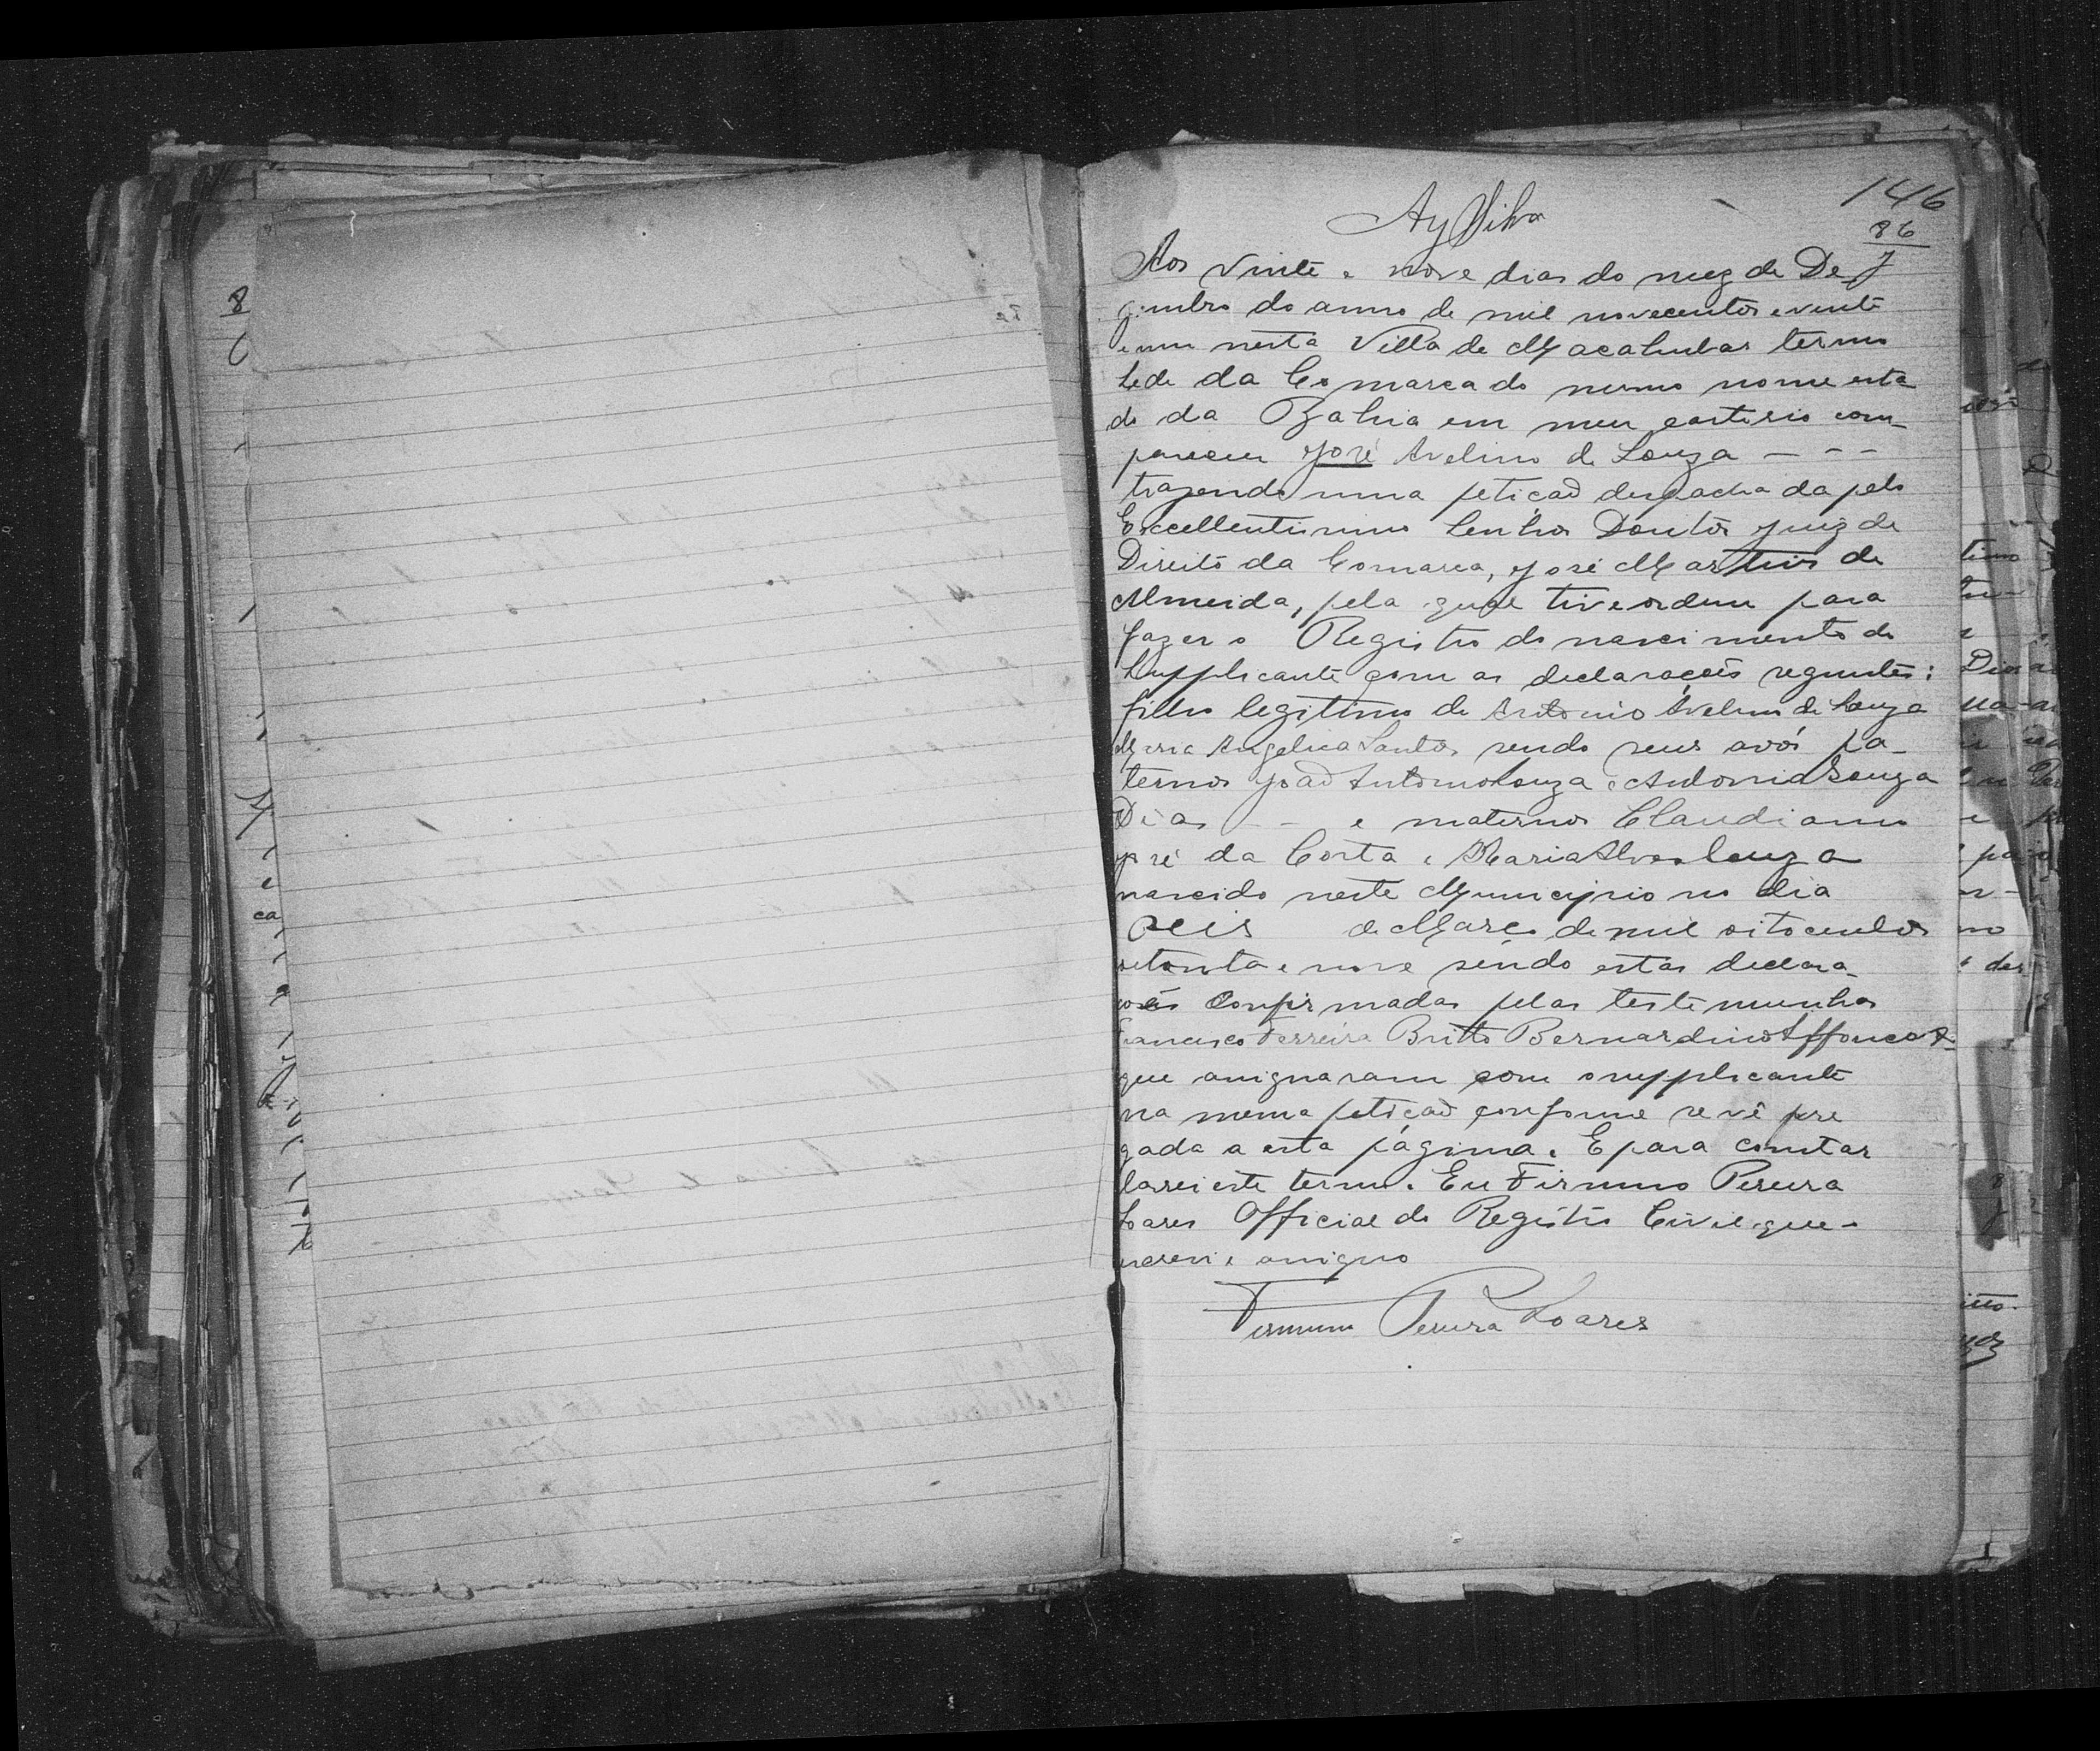 146
Ay Silva
86
Aos vinte e nove dias do mez de De-
zembro do anno de mil novecentos e vinte
e um nesta Villa de Macahubas termo
sede da Comarca do mesmo nome esta
do da Bahia em meu cartorio com-
pareceu José Avelino de Souza - - -
trazendo uma petição despachada pelo
Excellentissimo Senhor Doutor Juiz de
Direito da Comarca, José Martins de
Almeida, pela qual tive ordem para
fazer o Registro do nascimento do
Supplicante com as declarações seguintes:
filho legitimo de Antonio Avelino de Souza
Maria Angelica Santos sendo seus avós pa-
ternos João Antonio Souza e Antonia Souza
Dias - - e maternos Claudiano
José da Costa e Maria Alves Souza
nascido neste Municipio no dia
seis de Março de mil oitocentos
setenta e nove sendo estas declara-
ções confirmadas pelas testemunhas
Francisco Ferreira Britto Bernardino Affonco
que assignaram com o supplicante
na mesma petição conforme se vê pre
gada a esta página. E para constar
lavrei este termo. Eu Firmino Pereira
Soares Official do Registro Civil que-
escrevi e assigno
Firmino Pereira Soares